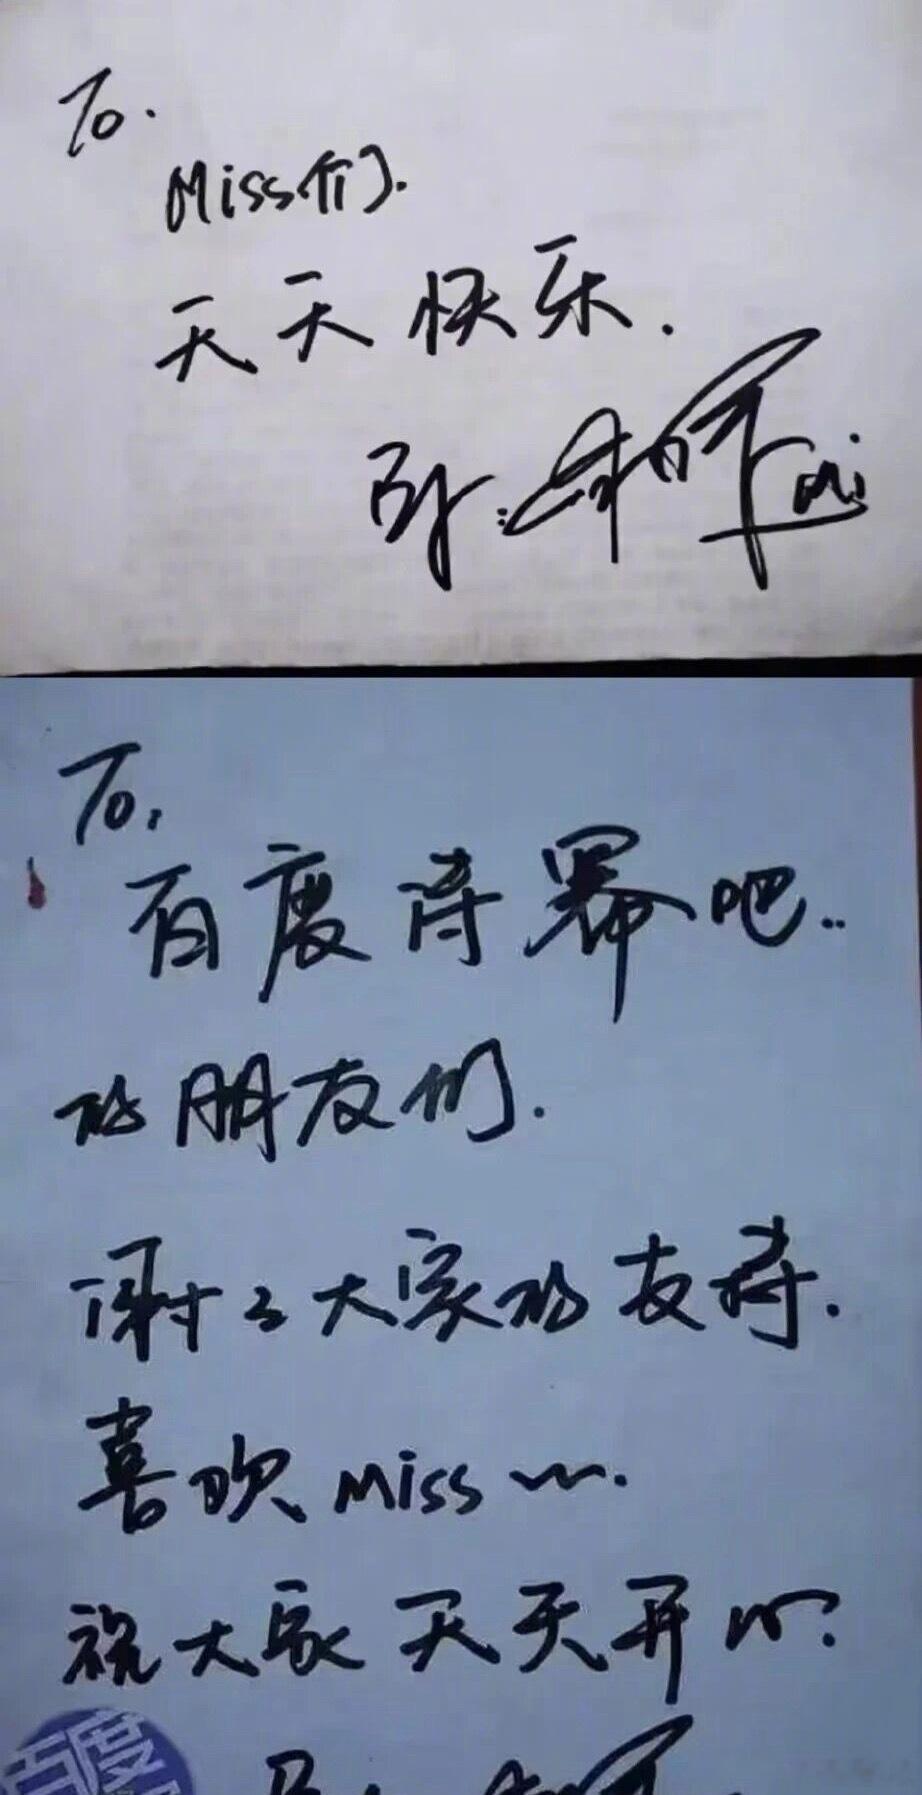 To.
Miss们.
天天快乐.
To:
百度诗幂吧..
的朋友们.
谢谢大家的支持.
喜欢Miss~~.
祝大家天天开心.
百度